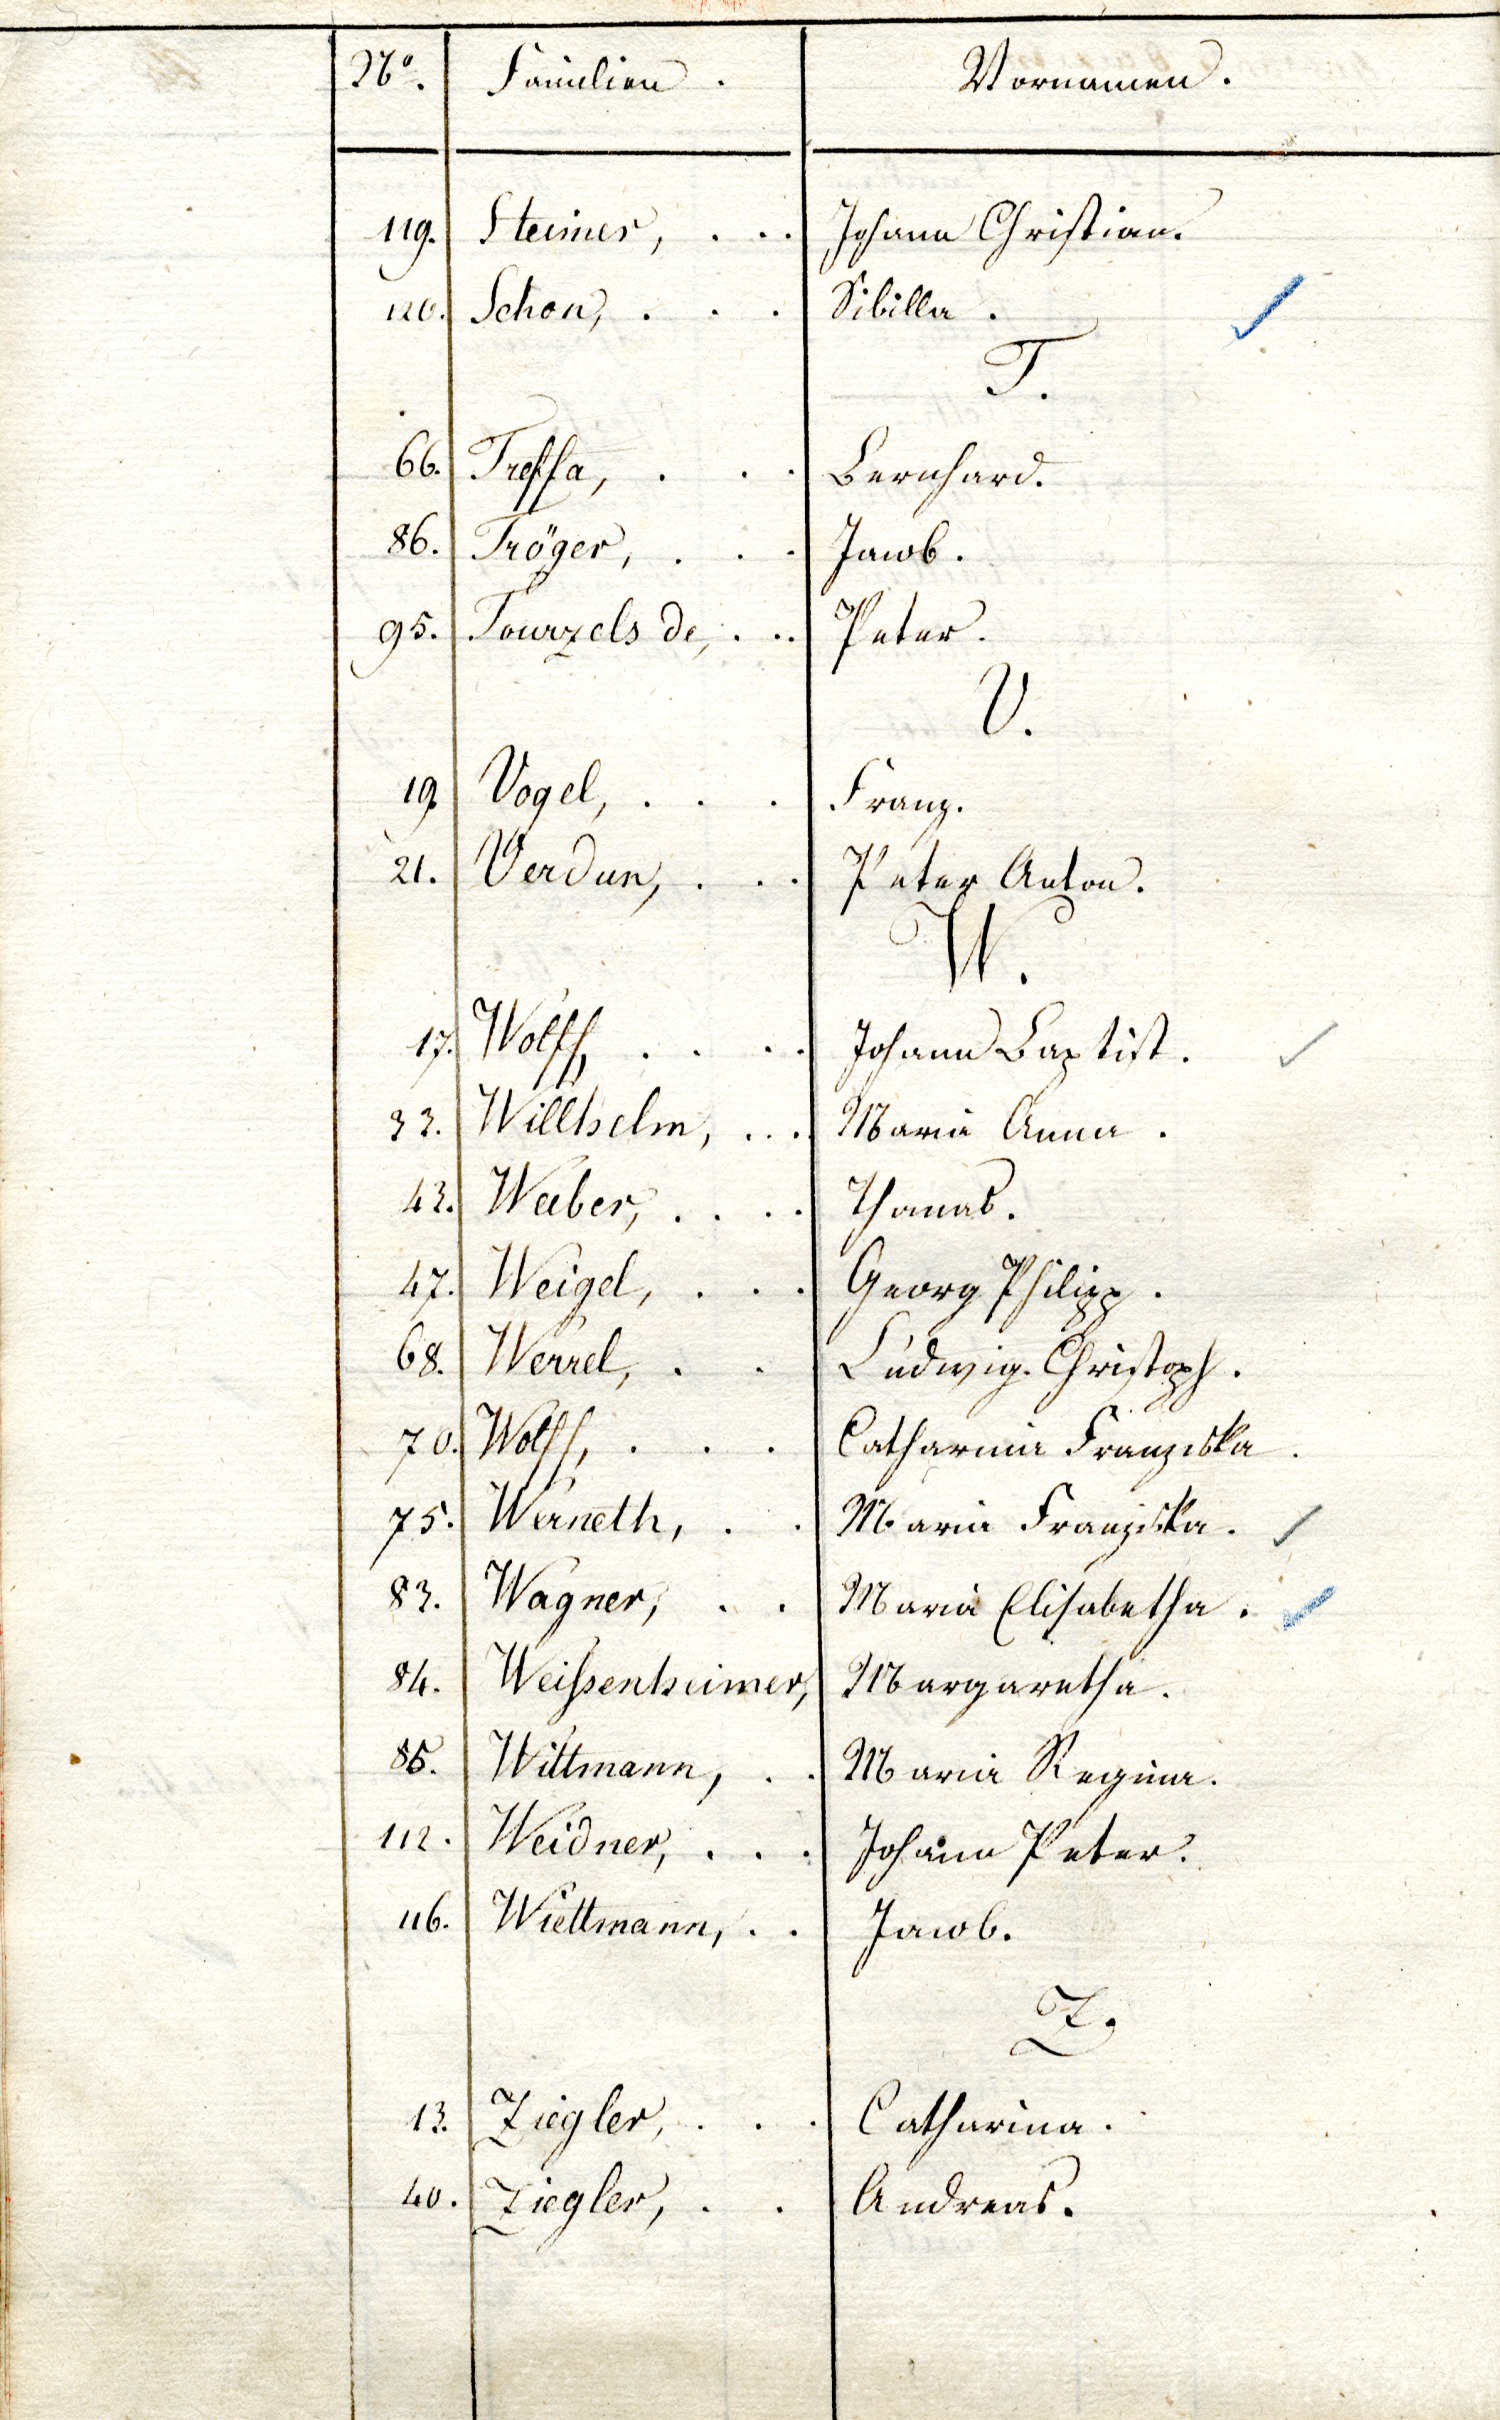 No. Familien. Vornamen.
119. Steimer, . . . Johann Christian.
120. Schon, . . . Sibilla.
T.
66. Treffa, . . . Bernhard.
86. Tröger, . . . Jacob.
95. Tourzels de, . . . Peter.
V.
19. Vogel, . . . Franz.
21. Verdun, . . . Peter Anton.
W.
17. Wolff, . . . . Johann Baptist.
33. Willhelm, . . . Maria Anna.
43. Weiber, . . . . Thomas.
47. Weigel, . . . Georg Philipp.
68. Werrel, . . Ludwig Christoph.
70. Wolff, . . . Catharina Franziska.
75. Werneth, . . Maria Franziska.
83. Wagner, . . Maria Elisabetha.
84. Weißenheimer, Margaretha.
85. Wittmann, . . Maria Regina.
112. Weidner, . . . Johann Peter.
116. Wiettmann, . . Jacob.
Z.
13. Ziegler, . . . Catharina.
40. Ziegler, . . Andreas.